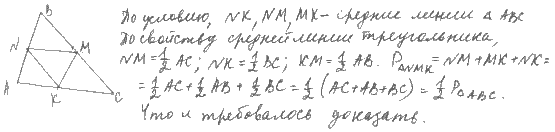 B
N
M
A
K
C
По условию, NK, NM, MK – средние линии Δ ABC
По свойству средней линии треугольника,
NM = 1/2 AC; NK = 1/2 BC; KM = 1/2 AB. P△NMK = NM + MK + NK =
= 1/2 AC + 1/2 AB + 1/2 BC = 1/2 (AC + AB + BC) = 1/2 P△ABC.
Что и требовалось доказать.